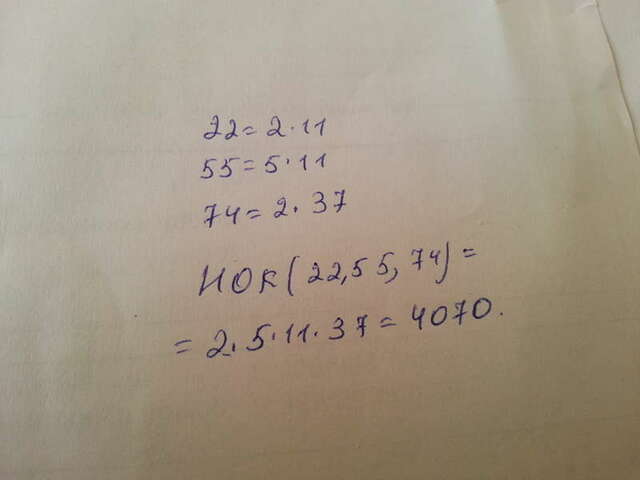 22=2·11
55=5·11
74=2·37
НОК(22,55,74)=
=2·5·11·37=4070.